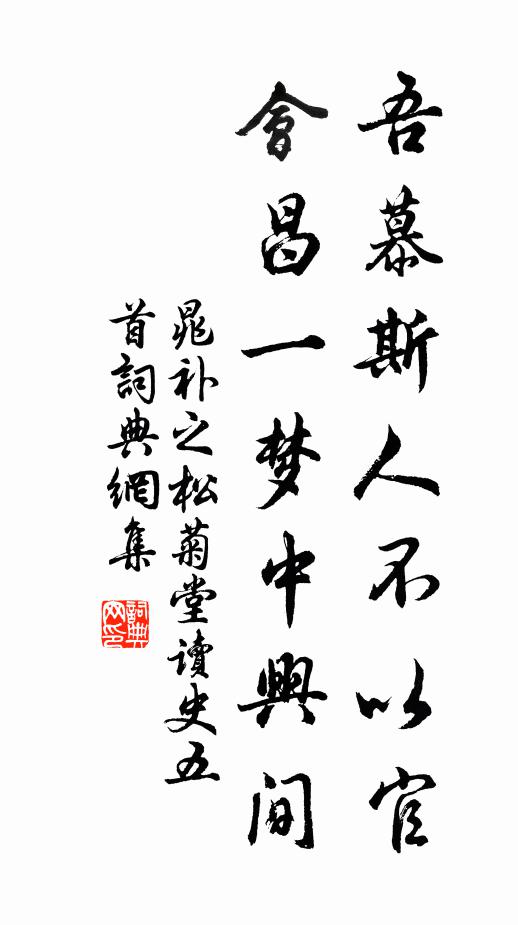 吾慕斯人不以官
會昌一梦中興間
晁补之松菊堂讀史五
首詞典網集
詞典网印